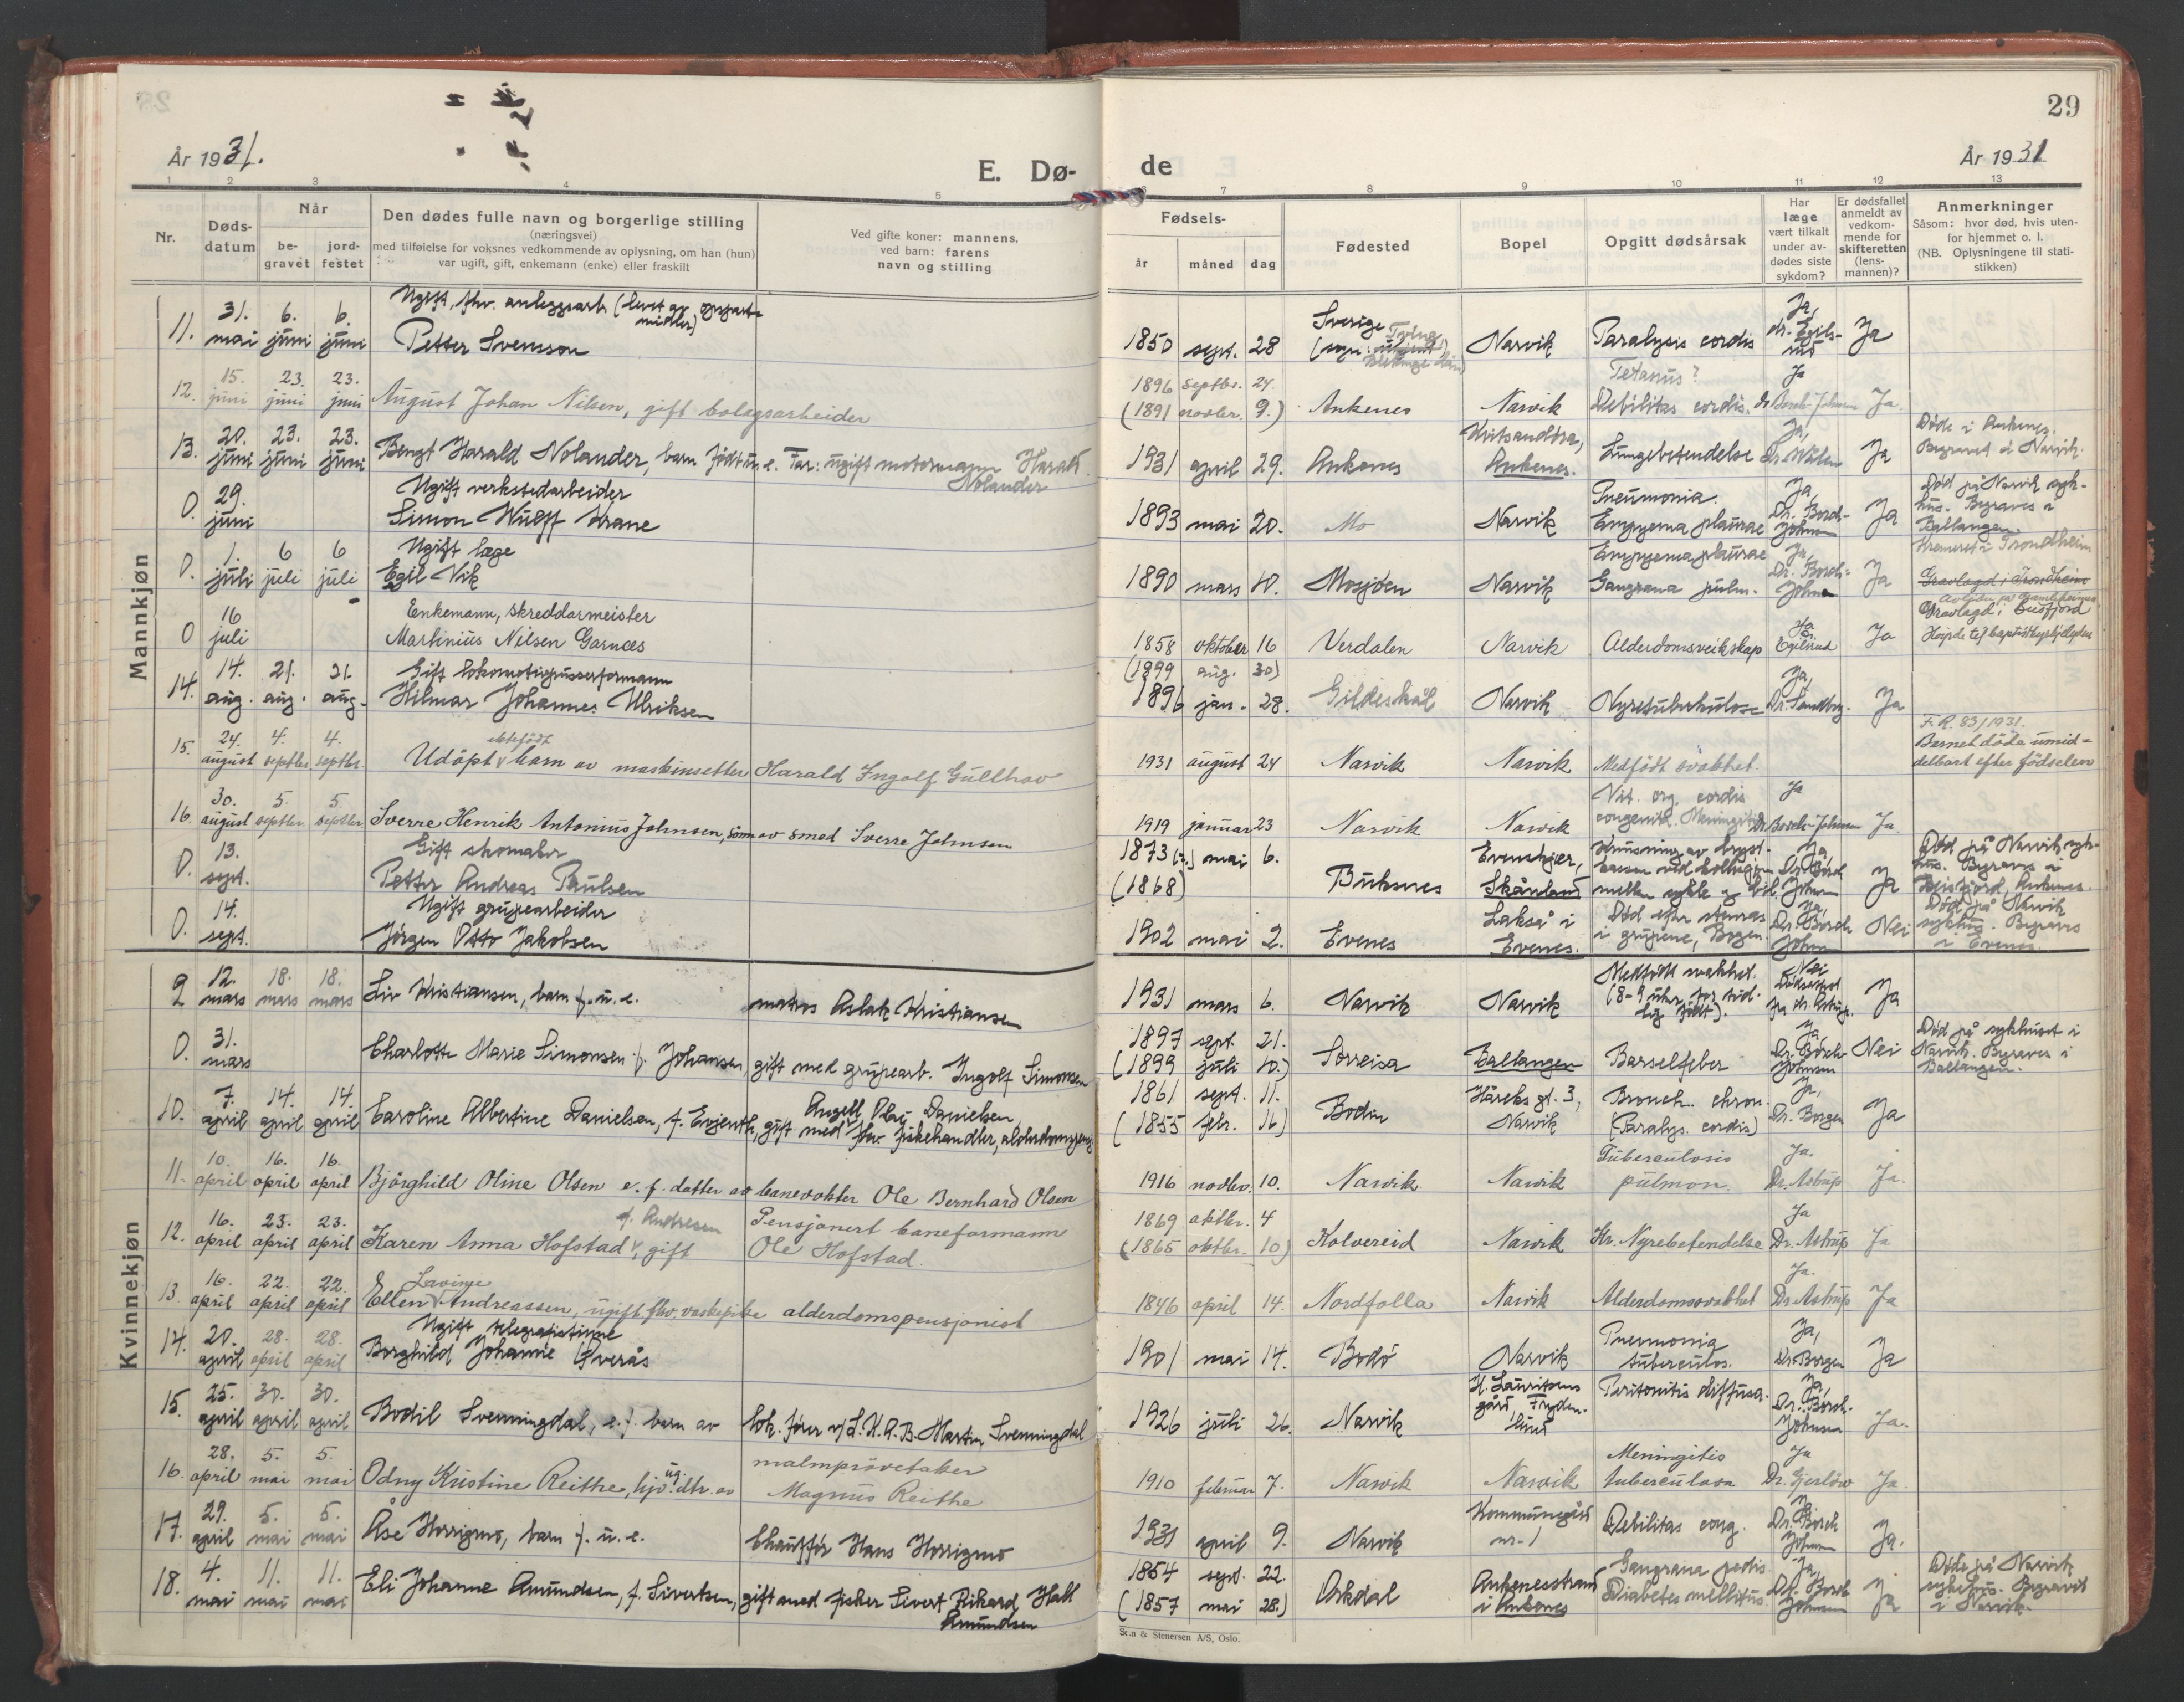 År 1931.
E. Dø-
de
29
År 1931
1 2 3 4 5 6 7 8 9 10 11 12 13
Nr.
Døds-
datum
Når
be-
gravet
jord-
festet
Den dødes fulle navn og borgerlige stilling
(næringsvei)
med tilføielse for voksnes vedkommende av oplysning, om han (hun)
var ugift, gift, enkemann (enke) eller fraskilt
Ved gifte koner: mannens,
ved barn: farens
navn og stilling
Fødsels-
år
måned
dag
Fødested
Bopel
Opgitt dødsårsak
Har
læge
vært tilkalt
under av-
dødes siste
sykdom?
Er dødsfallet
anmeldt av
vedkom-
mende for
skifteretten
(lens-
mannen)?
Anmerkninger
Såsom: hvor død, hvis uten-
for hjemmet o. l.
(NB. Oplysningene til stati-
stikken)
Mannkjøn
11. 31. mai 6. juni 6. juni Ugift, fhv. anleggsarb. (levet av opspart midler)
Petter Svensson
1850 sept. 28 Sverige Narvik Paralysis cordis Ja, dr. Egils-rud Ja
12. 15. juni 23. juni 23. juni August Johan Nilsen, gift bolagsarbeider
1896 septbr. 24. (1891 novbr. 9.) Ankenes Narvik Tetanus? Debilitas cordis. Ja dr Borch-Johnsen Ja.
13. 20. juni 23. juni 23. juni Bengt Harald Nolander, barn födt u. e. Far: ugift motormann Harald Nolander
1931 april 29. Ankenes Ankenes. Lungebetendelse Ja, Ja Døde i Ankenes. Begravet i Narvik.
0. 29. juni Ugift verkstedarbeider
Simon Wulff Krane
1893 mai 20. Mo Narvik Pneumonia. Empyema pleurae Ja, Dr. Borch-Johnsen Ja Død på Narvik syk-hus. Begraves i Ballangen.
0. 1. juli 6 juli 6 juli Ugift læge
Egil Vik
1890 mars 10. Mosjøen Narvik Empyema pleurae Gangræna pulm. Ja, Dr. Borch-Johnsen Ja Kremeret i Trondheim
Gravlagd i Trondheim
0 16 juli Enkemann, skreddarmeister
Martinius Nilsen Garnæs
1858 oktober 16 Verdalen Narvik Alderdomsveikskap Ja Egilsrud Ja Gravlagd i Beisfjord
14. 14. aug. 21. aug. 21. aug. Gift lokomotivpusserformann
Hilmar Johannes Ulriksen
(1899 aug. 30) 1896 jan. 28. Gildeskål Narvik Nyretuberkulose Ja, Dr. Sandberg. Ja
15. 24. august 4. septbr. 4. septbr. Udöpt ektefødt barn av maskinsetter Harald Ingolf Gullhav
1931 august 24 Narvik Narvik Medfödt svakhet. F. R. 83/1931. Barnet döde umid-delbart efter födselen
16. 30. august 5. septbr. 5. septbr. Sverre Henrik Antonius Johnsen, sönn av smed Sverre Johnsen
1919 januar 23 Narvik Narvik Vit. org. cordis congenit. Meningitis Ja Dr. Borch-Johnsen Ja
0. 13. sept. Gift skomaker
Petter Andreas Paulsen
1873 (?) mai 6. (1868) Buksnes Evenskjær, Skånland Knusning av bryst-kassen ved kollisjon mellem sykle og bil. Ja Dr. Borch Johnsen Ja Død på Narvik syk-hus. Begraves i Beisfjord, Ankenes.
0. 14. sept. Ugift grubearbeider
Jørgen Otto Jakobsen
1902 mai 2. Evenes Lakså i Evenes. Død efter stenras i grubene, Bogen. Ja, Dr. Borch Johnsen Nei Død på Narvik sykhus. Begraves i Evenes.
Kvinnekjøn
9 12. mars 18. mars 18. mars Liv Kristiansen, barn f. u. e. matros Aslak Kristiansen
1931 mars 6. Narvik Narvik Medfødt svakhet. (8-9 uker for tid-lig født). Nei Ja
0. 31. mars Charlotte Marie Simonsen f. Johansen, gift med grubearb. Ingolf Simonsen
1897 sept. 21. (1899 juli 10.) Sørreisa Ballangen Barselfeber Ja Dr. Borch Johnsen Nei Død på sykhuset i Narvik. Begraves i Ballangen.
10. 7. april 14. april 14. april Caroline Albertine Danielsen, f. Evjenth, gift med Angell Olaj Danielsen, fhv. fiskehandler, alderdomspensj.
1861 sept. 11. (1855 febr. 16) Bodin Håreks gt. 3, Narvik Bronch. chron. (Paralys. cordis) Ja, Dr. Borgen Ja
11. 10. april 16. april 16. april Bjørghild Oline Olsen e. f. datter av banevokter Ole Bernhard Olsen
1916 novbr. 10. Narvik Narvik Tuberculosis pulmon. Ja. Dr. Astrup Ja.
12. 16. april 23. april 23. april Karen Anna Hofstad f. Andresen, gift Pensjonert baneformann Ole Hofstad.
1869 oktbr. 4 (1865 oktbr. 10) Kolvereid Narvik Kr. Nyrebetendelse Ja Dr. Astrup Ja
13. 16. april 22. april 22. april Ellen Lavinje Andreassen, ugift fhv. vaskepike alderdomspensjonist
1846 april 14. Nordfolla Narvik Alderdomssvakhet Ja. Dr. Astrup Ja
14. 20. april 28. april 28. april Ugift telegrafistinne
Borghild Johanne Øverås
1901 mai 14. Bodö Narvik Pneumonia tuberculos. Ja, Dr. Borgen Ja
15. 25. april 30. april 30. april Bodil Svenningdal, e. f. barn av lok. fører v/L.K.A.B. Martin Svenningdal
1926 juli 26. Narvik H. Lauritsens gård, Fryden-lund Peritonitis diffusa. Ja, Dr. Borch-Johnsen Ja.
16. 28. april 5. mai 5. mai Odny Kristine Reithe, ug. hjv. dtr. av malmprövetaker Magnus Reithe
1910 februar 7. Narvik Narvik Meningitis tuberculosa Ja Dr. Gjerløw Ja.
17. 29. april 5. mai 5. mai Åse Horrigmo, barn f. u. e. Chauffør Hans Horrigmo
1931 april 9. Narvik Kommunegård nr. 1 Debilitas cong. Ja Dr. Borch Johnsen Ja.
18. 4. mai 11. mai 11. mai Eli Johanne Amundsen, f. Sivertsen, gift med fisker Sivert Rikard Hall Amundsen
1854 sept. 22. (1857 mai 28.) Orkdal Ankenesstrand i Ankenes Gangræna pedis Diabetes mellitus Ja, Dr. Borch Johnsen Ja Døde på Narvik sykehus. Begravet i Narvik.
Sem & Stenersen A/S, Oslo.